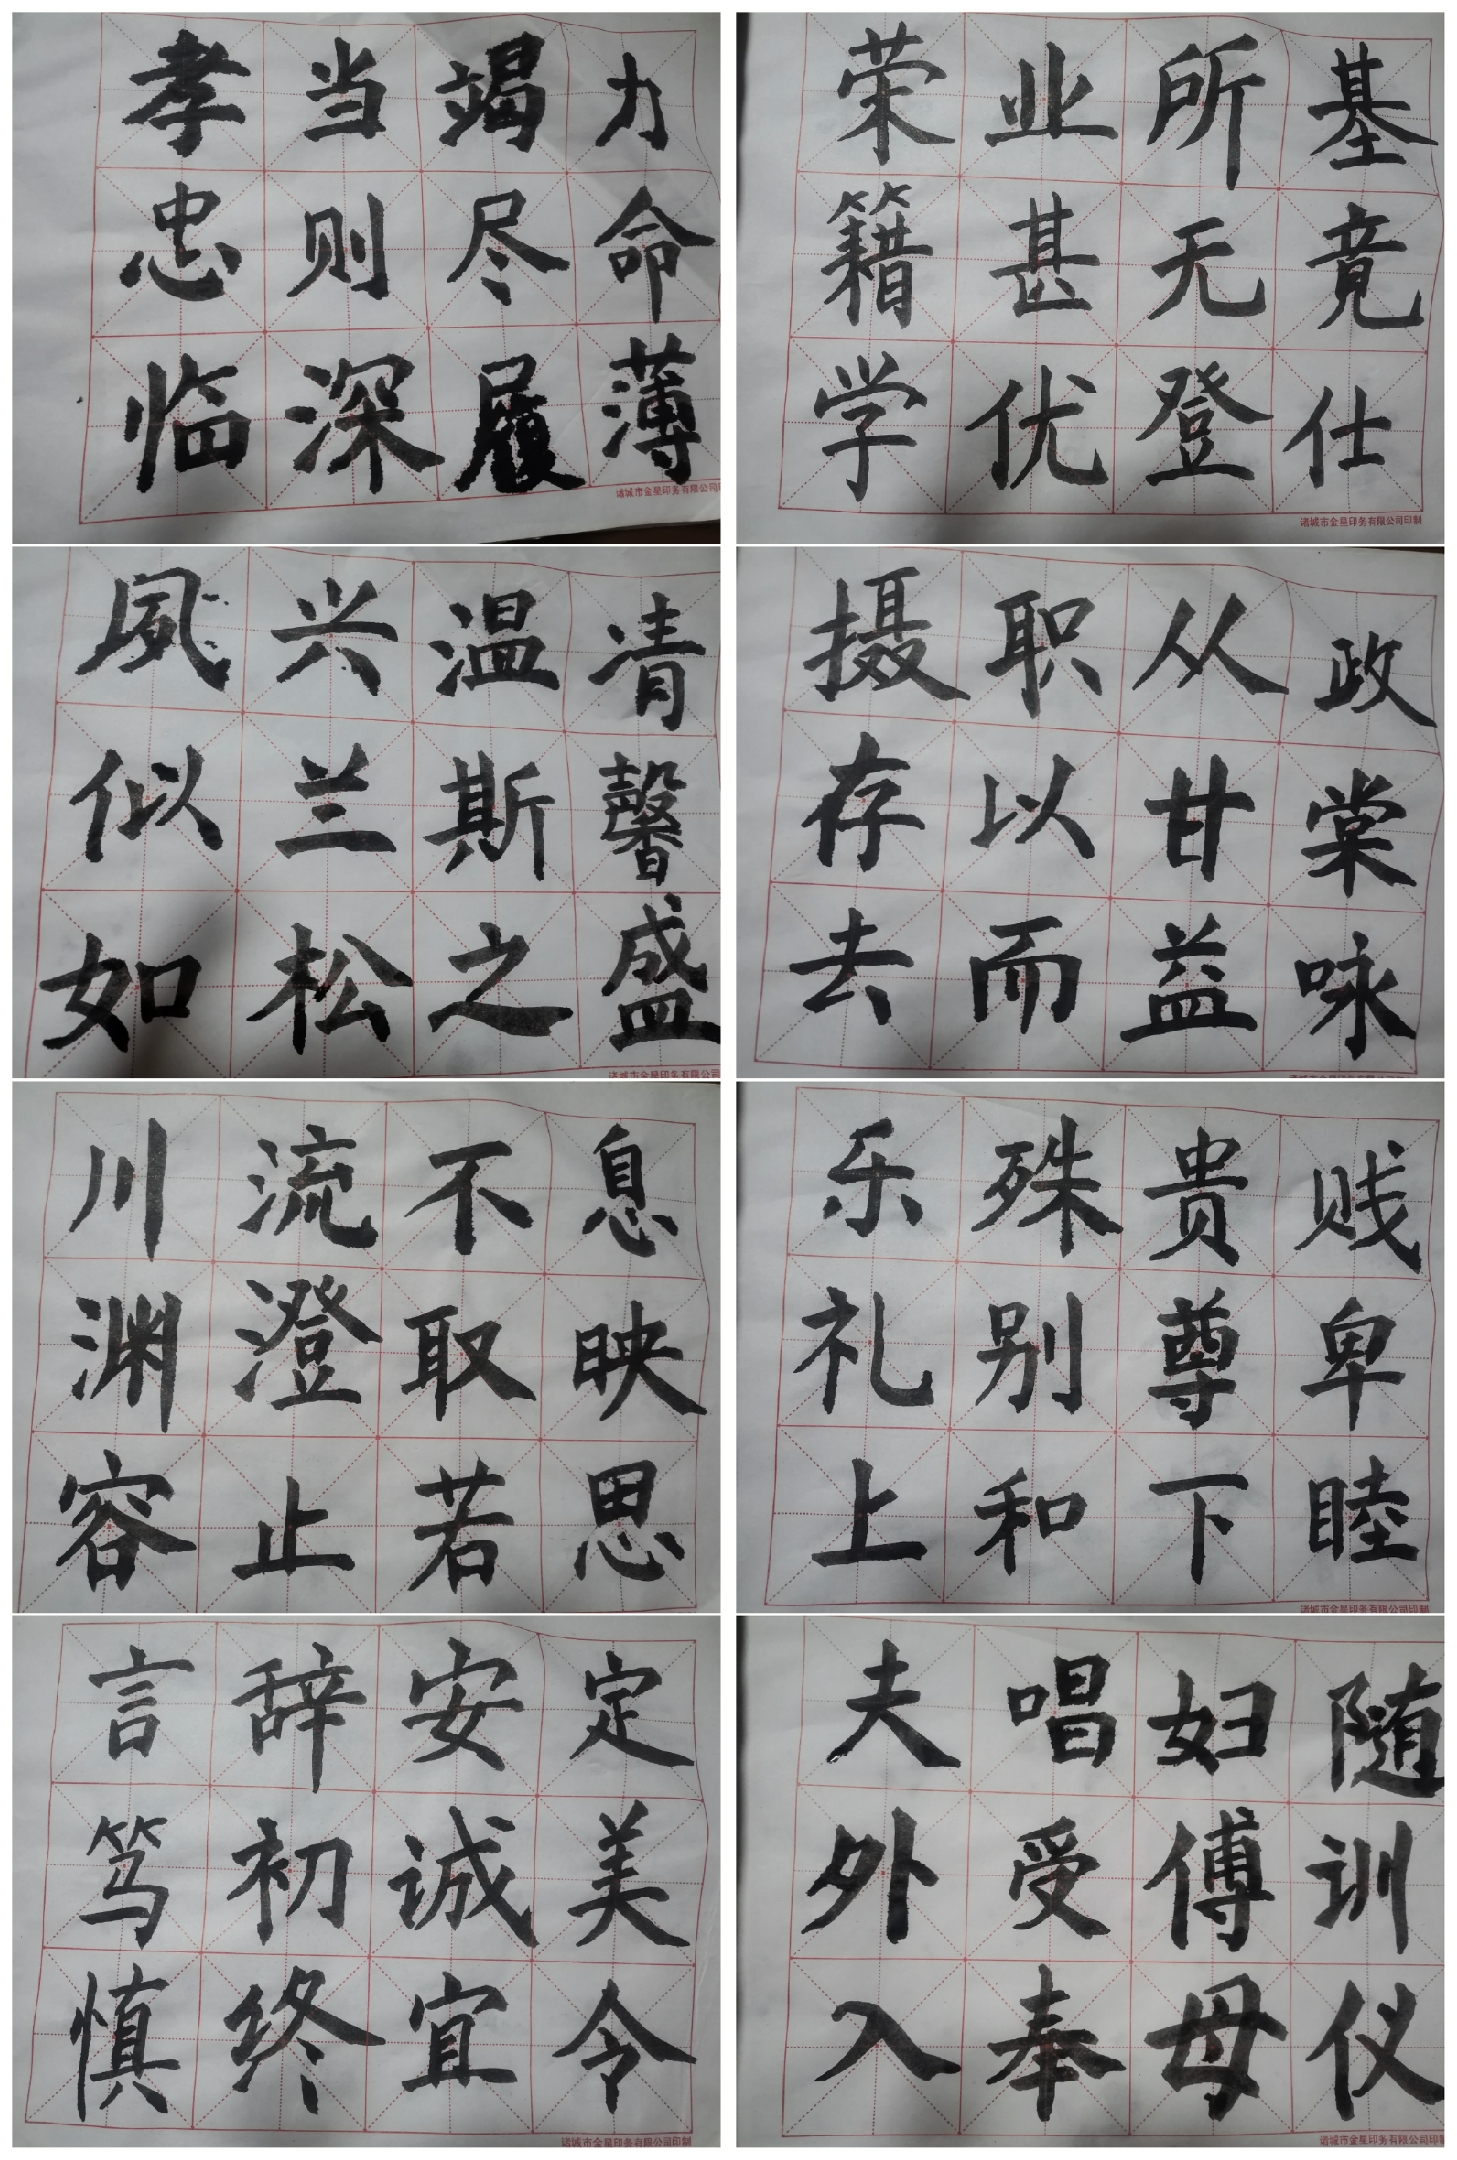 孝当竭力
忠则尽命
临深履薄
诸城市金星印务有限公司
夙兴温凊
似兰斯馨
如松之盛
诸城市金星印务有限公司
川流不息
渊澄取映
容止若思
言辞安定
笃初诚美
慎终宜令
诸城市金星印务有限公司印制
荣业所基
籍甚无竟
学优登仕
诸城市金星印务有限公司印制
摄职从政
存以甘棠
去而益咏
乐殊贵贱
礼别尊卑
上和下睦
诸城市金星印务有限公司印制
夫唱妇随
外受傅训
入奉母仪
诸城市金星印务有限公司印制